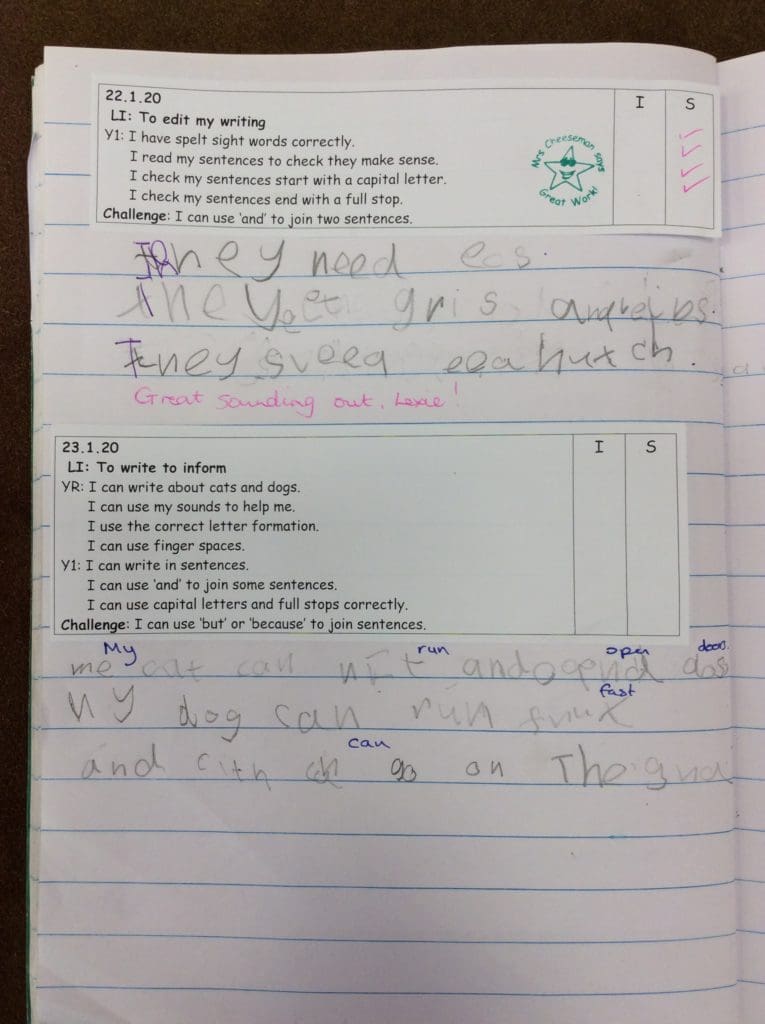 22.1.20 I S
LI: To edit my writing
Y1: I have spelt sight words correctly.
I read my sentences to check they make sense.
I check my sentences start with a capital letter.
I check my sentences end with a full stop.
Challenge: I can use 'and' to join two sentences.
Mrs Cheeseman says
Great Work!
They need eos.
They gris
They eea hutch.
Great sounding out, Lexie!
23.1.20 I S
LI: To write to inform
YR: I can write about cats and dogs.
I can use my sounds to help me.
I use the correct letter formation.
I can use finger spaces.
Y1: I can write in sentences.
I can use 'and' to join some sentences.
I can use capital letters and full stops correctly.
Challenge: I can use 'but' or 'because' to join sentences.
My run open doors
me cat can and
fast
my dog can run
can
and go on The